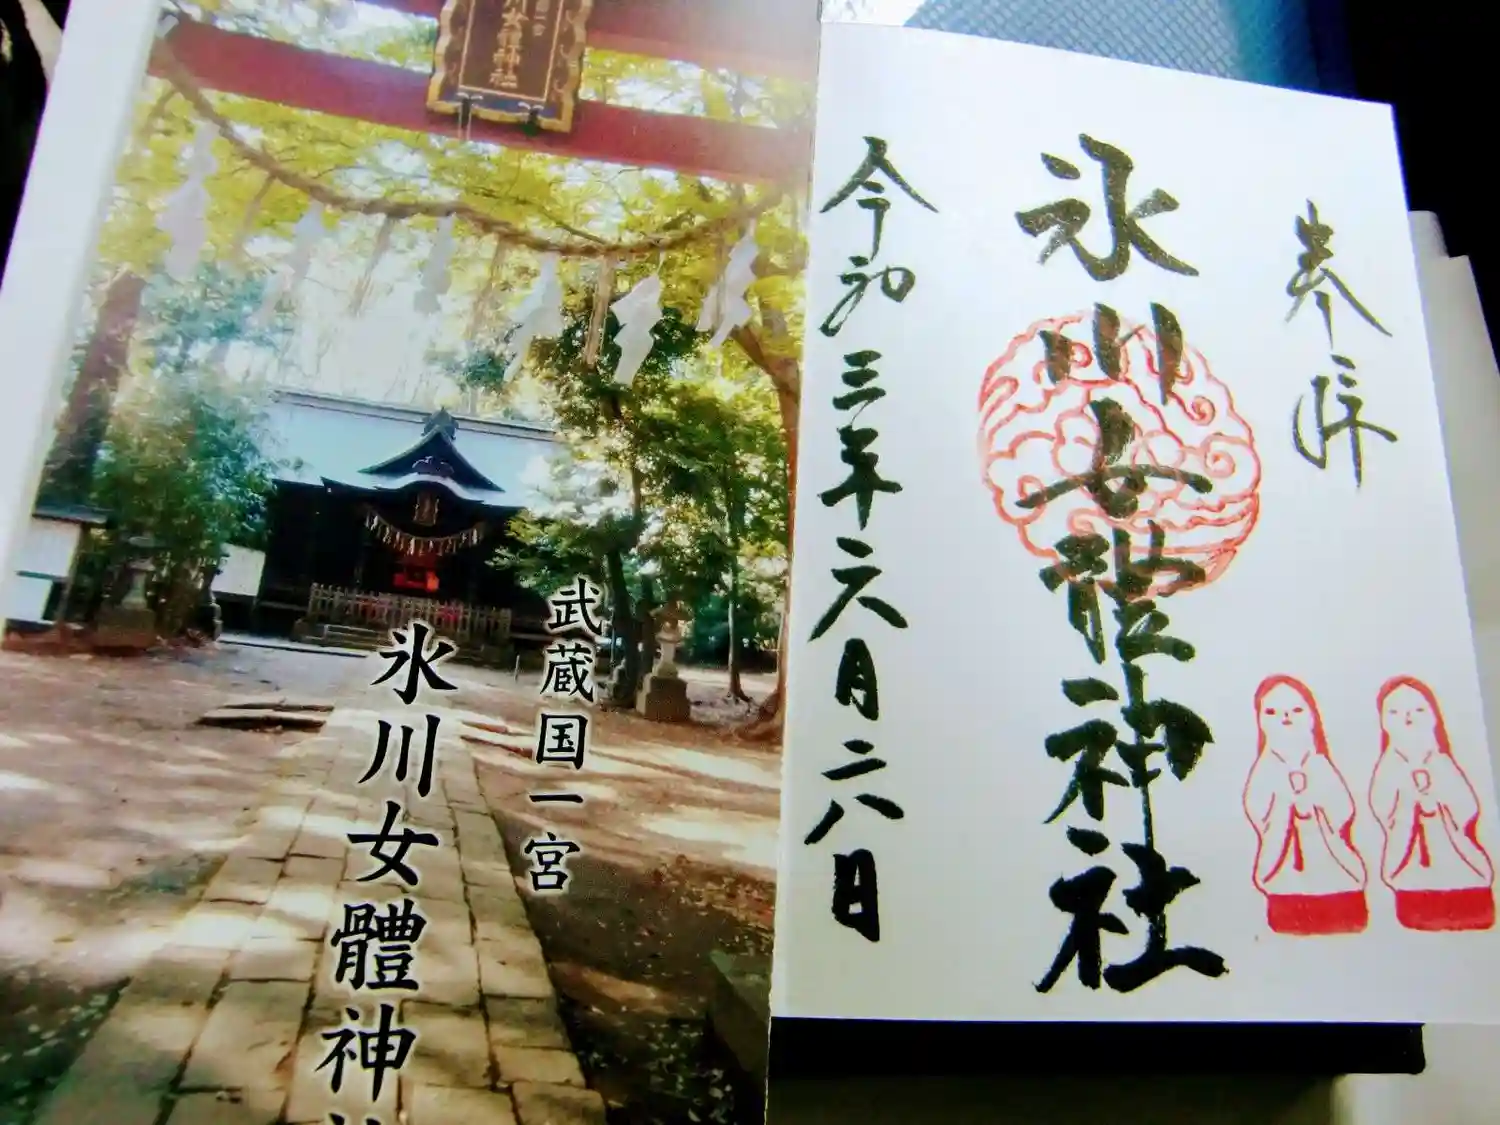 川女體神社
武蔵国一宮
氷川女體神
奉拝
氷川女體神社
令和三年六月二八日